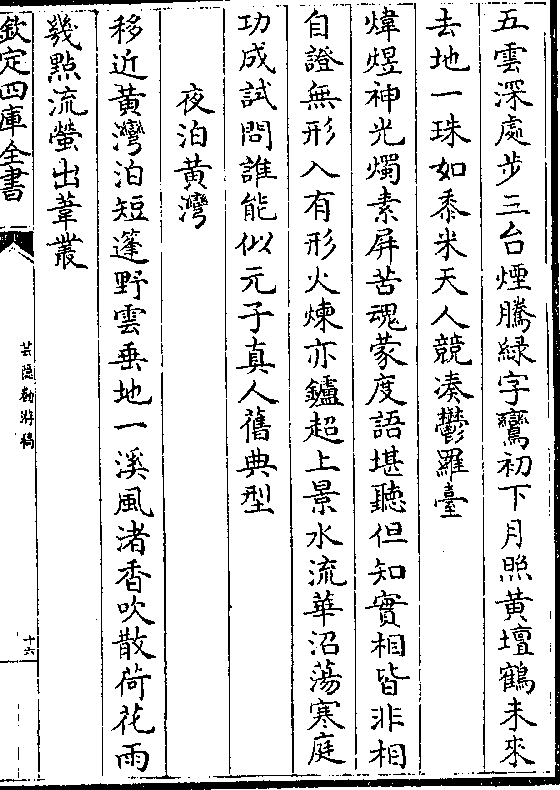 五雲深處步三台煙騰緑字鸞初下月照黄壇鶴未來
去地一珠如黍米天人競湊鬱羅臺
煒煜神光燭素屏苦魂蒙度語堪聽但知實相皆非相
自證無形入有形火煉亦鑪超上景水流華沼蕩寒庭
功成試問誰能似元子真人舊典型
夜泊黄灣
移近黄灣泊短蓬野雲垂地一溪風渚香吹散荷花雨
幾點流螢出葦叢
欽定四庫全書
芸隱勌游稿
十六